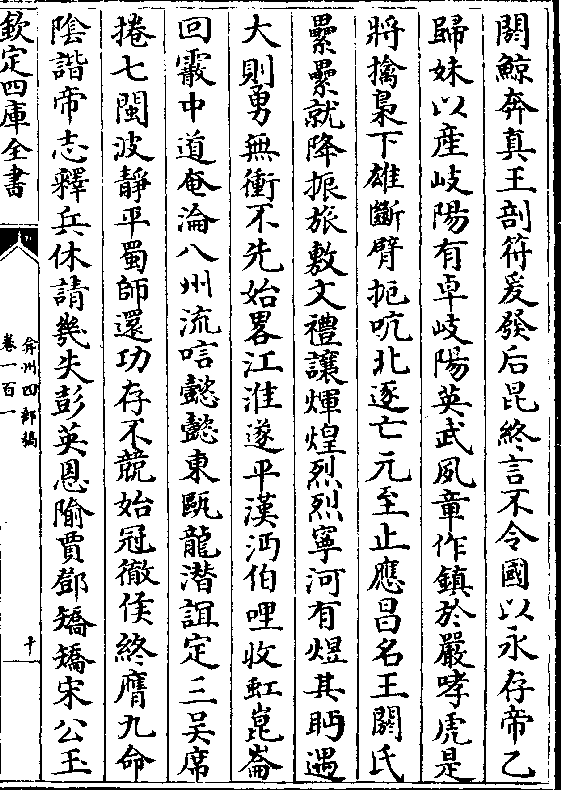 闕鯨奔真王剖符爰發后昆終言不令國以永存帝乙
歸妹以産岐陽有卓岐陽英武夙章作鎮於嚴哮虎是
將擒梟下雄斷臂扼吭北逐亡元至止應昌名王闕氏
纍纍就降振旅敷文禮讓煇煌烈烈寧河有煜其眄遇
大則勇無衝不先始畧江淮遂平漢沔伯哩收虹崑崙
回霰中道奄淪八州流唁懿懿東甌龍潛誼定三吳席
捲七閩波靜平蜀師還功存不競始冠徹侯終膺九命
陰諧帝志釋兵休請㡬失彭英恩隃賈鄧矯矯宋公玉
欽定四庫全書
弇州四部稿
卷一百一
十